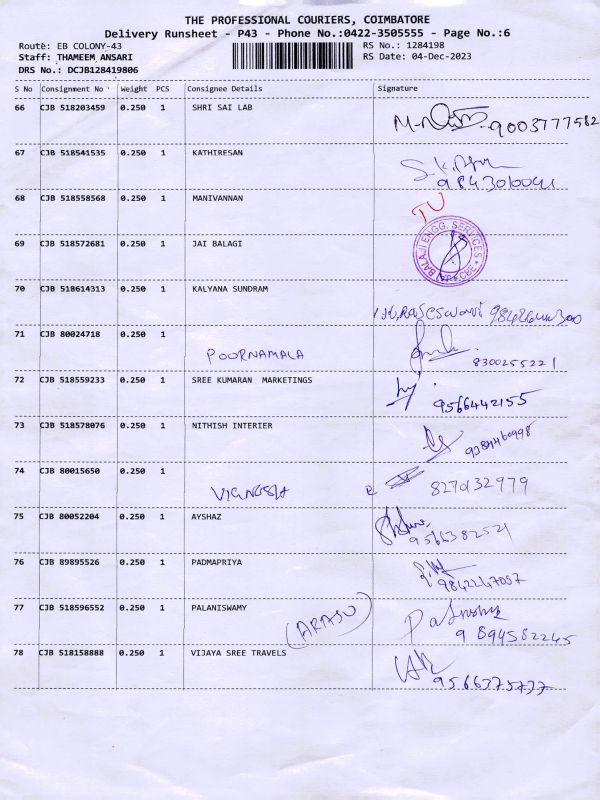 THE PROFESSIONAL COURIERS, COIMBATORE
Delivery Runsheet - P43 - Phone No.:0422-3505555 - Page No.:6
Route: EB COLONY-43 RS No.: 1284198
Staff: THAMEEM ANSARI RS Date: 04-Dec-2023
DRS No.: DCJB128419806
S No Consignment No Weight PCS Consignee Details Signature
66 CJB 518203459 0.250 1 SHRI SAI LAB
9003777582
67 CJB 518541535 0.250 1 KATHIRESAN
68 CJB 518558568 0.250 1 MANIVANNAN
TV
69 CJB 518572681 0.250 1 JAI BALAGI
BALAJI ENGG. SERVICES
CBE
70 CJB 518614313 0.250 1 KALYANA SUNDRAM
71 CJB 80024718 0.250 1
POORNAMALA 8300255221
72 CJB 518559233 0.250 1 SREE KUMARAN MARKETINGS
9566442155
73 CJB 518578076 0.250 1 NITHISH INTERIER
9384460998
74 CJB 80015650 0.250 1
VIGNESH 8270132979
75 CJB 80052204 0.250 1 AYSHAZ
9566382521
76 CJB 89895526 0.250 1 PADMAPRIYA
9842247057
77 CJB 518596552 0.250 1 PALANISWAMY
(ARASU) 9894582245
78 CJB 518158888 0.250 1 VIJAYA SREE TRAVELS
9566375777